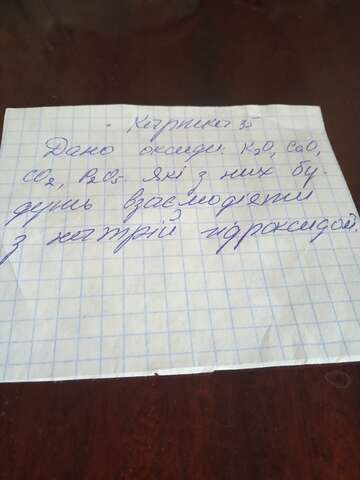 Картка 35
Дано оксиди: K2O, CaO,
CO2, P2O5. Які з них бу-
дуть взаємодіяти
з натрій гідроксидом.